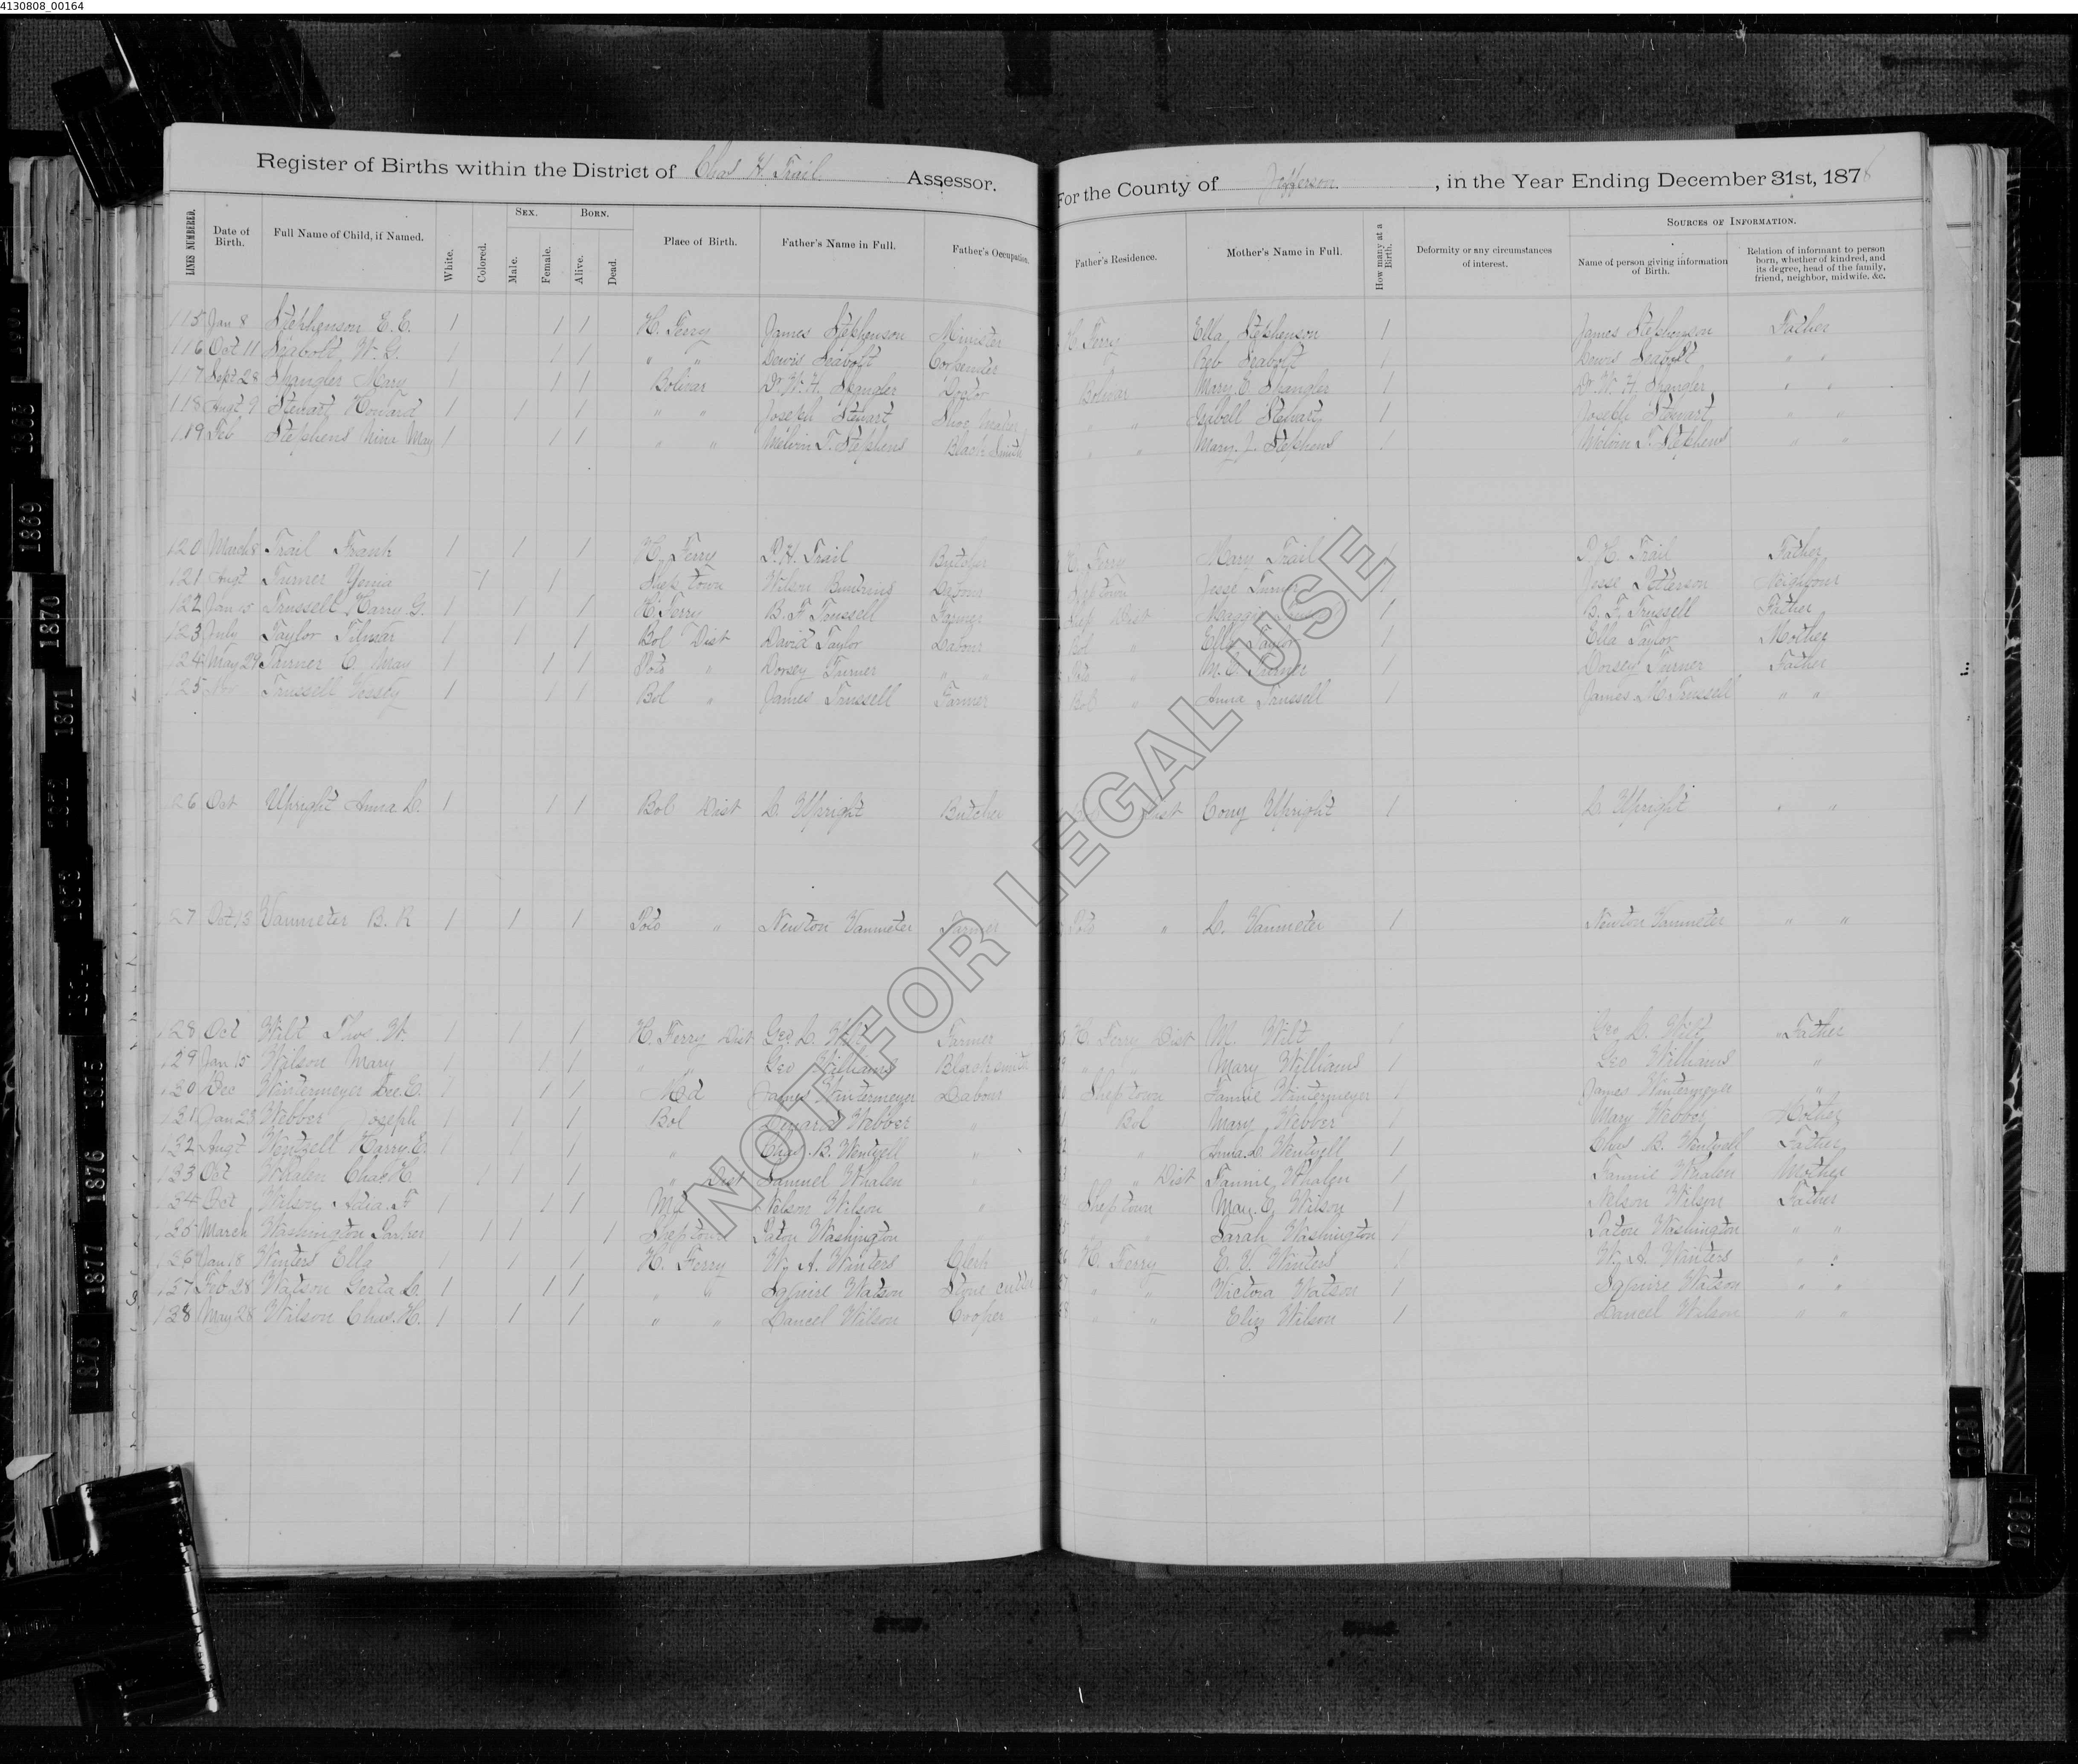 4130808_00164
Register of Births within the District of Chas H. Trail Assessor.
For the County of Jefferson, in the Year Ending December 31st, 1878
LINES NUMBERED. Date of Birth. Full Name of Child, if Named. White. Colored. SEX. Male. Female. BORN. Alive. Dead. Place of Birth. Father's Name in Full. Father's Occupation. Father's Residence. Mother's Name in Full. How many at a Birth. Deformity or any circumstances of interest. SOURCES OF INFORMATION. Name of person giving information of Birth. Relation of informant to person born, whether of kindred, and its degree, head of the family, friend, neighbor, midwife, &c.
115 Jan 8 Stephenson E. E. 1 1 1 H. Ferry James Stephenson Minister H. Ferry Ella Stephenson 1 James Stephenson Father
116 Oct 11 Seabolt, W. G. 1 1 1 " " Lewis Seabolt Carpenter " Reb Seabolt 1 Lewis Seabolt " "
117 Sept 28 Spangler Mary 1 1 1 Bolivar Dr W. H. Spangler Doctor Bolivar Mary E. Spangler 1 Dr W. H. Spangler " "
118 Augt 9 Stewart Howard 1 1 1 " " Joseph Stewart Shoe Maker " " Isabell Stewart 1 Joseph Stewart " "
119 Feb Stephens Nina May 1 1 1 " " Melvin T. Stephens Black Smith " " Mary J. Stephens 1 Melvin T. Stephens " "
120 March 5 Trail Frank 1 1 1 H. Ferry Trail Butcher H. Ferry Mary Trail H. Trail Father
121 Augt Turner 1 1 Shep Town Wilson Labour Shptown Jesse Turner 1 Jesse Patterson Neighbour
122 Jan 15 Trussell Harry G. 1 1 1 H. Ferry B. F. Trussell Farmer Dist Maggie 1 B. F. Trussell Father
123 July Taylor Tilmar 1 1 1 Bol Dist David Taylor Labour Bol " Ella Taylor 1 Ella Taylor Mother
124 May 29 Turner C. May 1 1 1 Poto " Dorsey Turner " " Poto " M. C. Turner 1 Dorsey Turner Father
125 Nov Trussell 1 1 1 Bol " James Trussell Farmer Bol " Anna Trussell 1 James M. Trussell " "
26 Oct Upright Anna L. 1 1 1 Bol Dist L. Upright Butcher Dist Cony Upright 1 L. Upright " "
27 Oct 13 Vanmeter B. R 1 1 1 Poto " Newton Vanmeter Farmer Poto " L. Vanmeter 1 Newton Vanmeter " "
128 Oct Wilt Thos. W. 1 1 1 H. Ferry Dist Geo. L. Wilt Farmer H. Ferry Dist M. Wilt 1 Geo L. Wilt " Father
129 Jan 15 Wilson Mary 1 1 1 " " Geo Williams Blacksmith " " Mary Williams 1 Geo Williams "
130 Dec Wintermeyer E. 1 1 1 Md James Wintermeyer Labour Sheptown Fannie Wintermeyer 1 James Wintermeyer "
131 Jan 23 Webber Joseph 1 1 1 Bol Edward Webber " Bol Mary Webber 1 Mary Webber Mother
132 Augt Wentzell Harry E. 1 1 1 " Chas. B. Wentzell " " Anna L. Wentzell 1 Chas B. Wentzell Father
133 Oct Whalen Chas H. 1 1 1 " Dist Samuel Whalen " " Dist Fannie Whalen 1 Fannie Whalen Mother
134 Oct Wilson, Adia. F 1 1 1 Md Nelson Wilson " Sheptown May. E. Wilson 1 Nelson Wilson Father
135 March Washington Parker 1 1 1 Sheptown Paton Washington " Sarah Washington 1 Paton Washington " "
136 Jan 18 Winters Ella 1 1 1 H. Ferry W. A. Winters Clerk H. Ferry E. V. Winters 1 W. A. Winters " "
137 Feb 28 Watson Gerta L. 1 1 1 " " Squire Watson Stone cutter " " Victora Watson 1 Squire Watson " "
138 May 28 Wilson Chas. H. 1 1 1 " " Dancel Wilson Cooper " " Eliz Wilson 1 Dancel Wilson " "
NOT FOR LEGAL USE
1869
1870
1871
1872
1873
1876
1877
1878
1879
1880